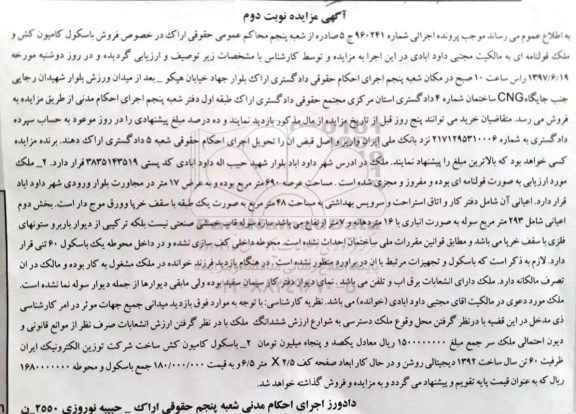 آگهی مزایده نوبت دوم
به اطلاع عموم می رساند موجب پرونده اجرائی شماره ۹۶۰۲۴۱ ج ۵ صادره از شعبه پنجم محاکم عمومی حقوقی اراک در خصوص فروش باسکول کامیون کش و
ملک قولنامه ای به مالکیت مجتبی داود ابادی در این اجرا به مزایده و توسط کارشناس با مشخصات زیر توصیف و ارزیابی گردیده و در روز دوشنبه مورخه
۱۳۹۷/۶/۱۹ راس ساعت ۱۰ صبح در مکان شعبه پنجم اجرای احکام حقوقی دادگستری اراک بلوار جهاد خیابان هپکو _ بعد از میدان ورزش بلوار شهیدان رجایی
جنب جایگاه CNG ساختمان شماره ۴ دادگستری استان مرکزی مجتمع حقوقی دادگستری اراک طبقه اول دفتر شعبه پنجم اجرای احکام مدنی از طریق مزایده به
فروش می رسد. متقاضیان خرید می توانند پنج روز قبل از تاریخ مزایده از مال مذکور بازدید نمایند و ده درصد مبلغ پیشنهادی را در روز موعود به حساب سپرده
دادگستری به شماره ۲۱۷۱۲۹۵۳۱۰۰۰۶ نزد بانک ملی ایران واریز و اصل فیش ان را تحویل اجرای احکام حقوقی شعبه ۵ دادگستری اراک دهند. برنده مزایده
کسی خواهد بود که بالاترین مبلغ را پیشنهاد نمایند. ملک در ادرس شهر داود اباد بلوار شهید حبیب اله داود ابادی کد پستی ۳۸۳۵۱۴۳۵۱۹ قرار دارد. ۲_ ملک
مورد ارزیابی به صورت قولنامه ای بوده و مفروز و مجزی شده است . مساحت عرصه ۶۹۰ متر مربع بوده و به عرض ۱۷ متر در مجاورت بلوار ورودی شهر داود اباد
قرار دارد. اعیانی آن شامل دفتر کار و اتاق استراحت و سرویس بهداشتی به مساحت ۴۸ متر مربع به صورت یک طبقه با سقف خرپا وورق موج دار است. بخش دوم
اعیانی شامل ۲۹۳ متر مربع سوله به صورت انباری با ۱۶ متر دهانه و ۷ متر ارتفاع می باشد سازه سوله قاب خمشی صنعتی نیست بلکه ترکیبی از دیوار باربر و ستونهای
فلزی با سقف خرپا می باشد و مطابق قوانین مقررات ملی ساختمان احداث نشده است. محوطه داخلی کف سازی نشده و در داخل محوطه یک باسکول ۶۰ تنی قرار
دارد. لازم به ذکر است که باسکول و تجهیزات مرتبط با ان در براورد منظور نشده است . در هنگام بازدید فرزند خوانده در ملک مشغول به کار بوده و مالک در ان
تصرف مالکانه دارد. ملک دارای انشعابات برق اب و تلفن می باشد . نمای دیوار دفتر کار سیمان سفید بوده ولی مابقی دیوارها از جمله دیوار سوله نما نشده است.
ملک مورد دعوی در مالکیت اقای مجتبی داود ابادی (خوانده) می باشد. نظریه کارشناسی: با توجه به موارد فوق بازدید میدانی جمیع جهات موثر در امر کارشناسی
ذی مدخل در این قضیه با درنظر گرفتن محل وقوع ملک دسترسی به شوارع ارزش ششدانگ ملک با در نظر گرفتن ارزش انشعابات صرف نظر از موانع قانونی و
دیون احتمالی ملک سر جمع مبلغ ۱۵۰۰۰۰۰۰۰۰ ریال معادل یکصد و پنجاه میلیون تومان ۲_ باسکول کامیون کش ساخت شرکت توزین الکترونیک ایران
ظرفیت ۶۰ تن سال ساخت ۱۳۹۲ دیجیتالی روشن و در حال کار ابعاد صفحه کف ۲/۵ X ۶/۵ متر و به قیمت ۱۸۰/۰۰۰/۰۰۰ جمع باسکول و محوطه ۱۶۸۰۰۰۰۰۰۰
ریال که به عنوان قیمت پایه تقویم و پیشنهاد می گردد و به مزایده و فروش گذاشته خواهد شد.
دادورز اجرای احکام مدنی شعبه پنجم حقوقی اراک _ حبیبه نوروزی ۲۵۵۰_ن